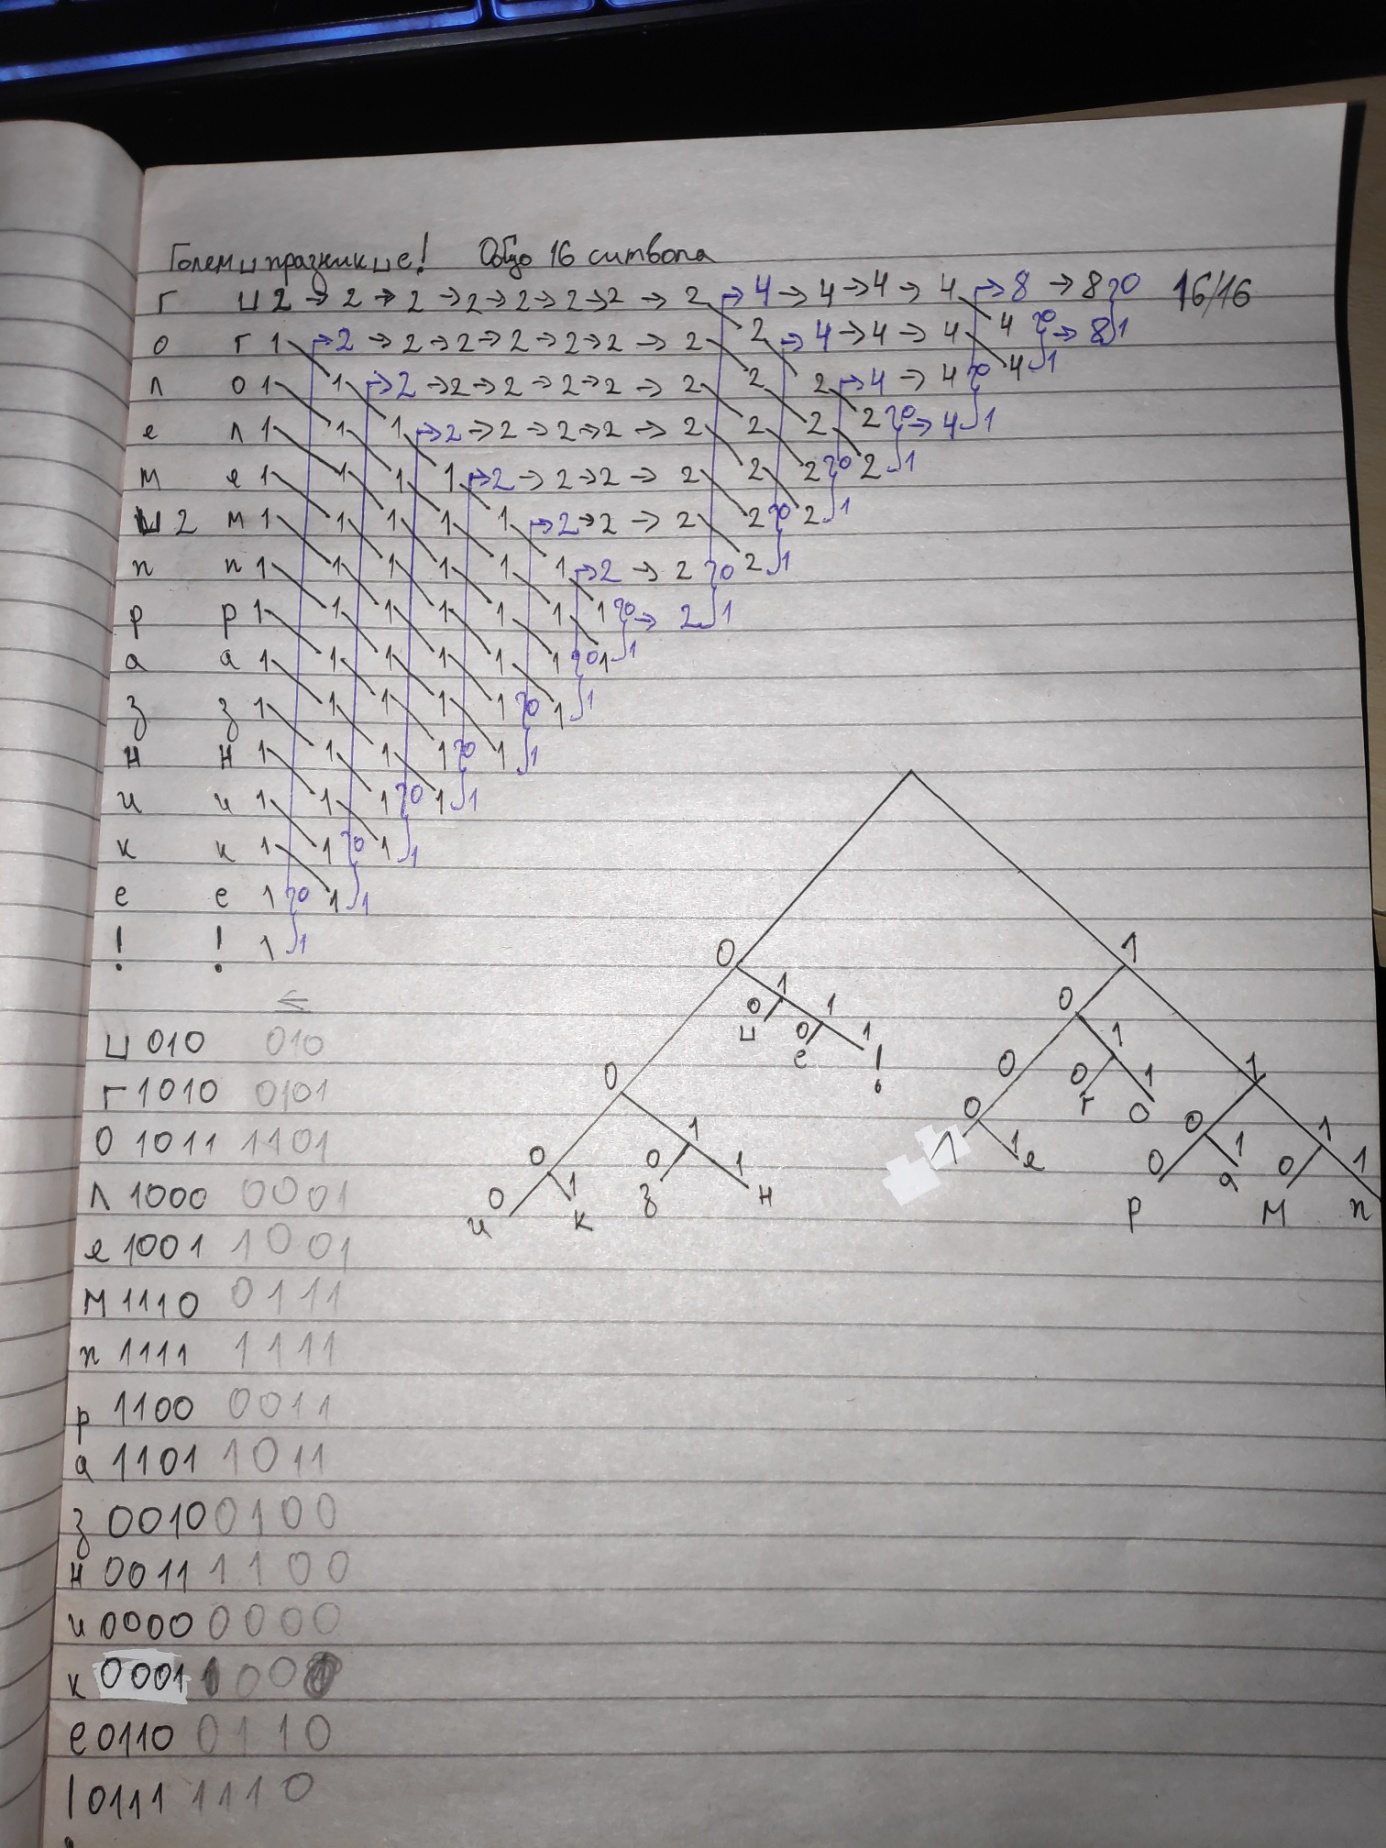 Големи␣празник␣е! Общо 16 символа
г ␣ 2 → 2 → 2 → 2 → 2 → 2 → 2 → 2 → 4 → 4 → 4 → 4 → 8 → 8 }0 16/16
о г 1 1 → 2 → 2 → 2 → 2 → 2 → 2 → 2 2 → 4 → 4 → 4 4 }0 → 8 }1
л о 1 1 → 2 → 2 → 2 → 2 → 2 → 2 2 2 → 4 → 4 }0 4 }1
е л 1 1 1 → 2 → 2 → 2 → 2 → 2 2 2 2 }0 → 4 }1
м е 1 1 1 1 → 2 → 2 → 2 → 2 2 2 }0 2 }1
␣ 2 м 1 1 1 1 1 → 2 → 2 → 2 2 }0 2 }1
п п 1 1 1 1 1 1 → 2 → 2 }0 2 }1
р р 1 1 1 1 1 1 1 }0 → 2 }1
а а 1 1 1 1 1 1 }0 1 }1
з з 1 1 1 1 1 }0 1 }1
н н 1 1 1 1 }0 1 }1
и и 1 1 1 }0 1 }1
к к 1 1 }0 1 }1
е е 1 }0 1 }1
! ! 1 }1
←
␣ 010 010
г 1010 0101
о 1011 1101
л 1000 0001
е 1001 1001
м 1110 0111
п 1111 1111
р 1100 0011
а 1101 1011
з 0010 0100
н 0011 1100
и 0000 0000
к 0001 100
е 0110 0110
! 0111 1110
0 1
0 1 1 0
0 ␣ 0 1 1
0 е ! 0 0 г 1 о 1
0 1 0 1 0 1
0 и 1 к 0 з 1 н
л 1 е 0 р 1 а 0 м 1 п